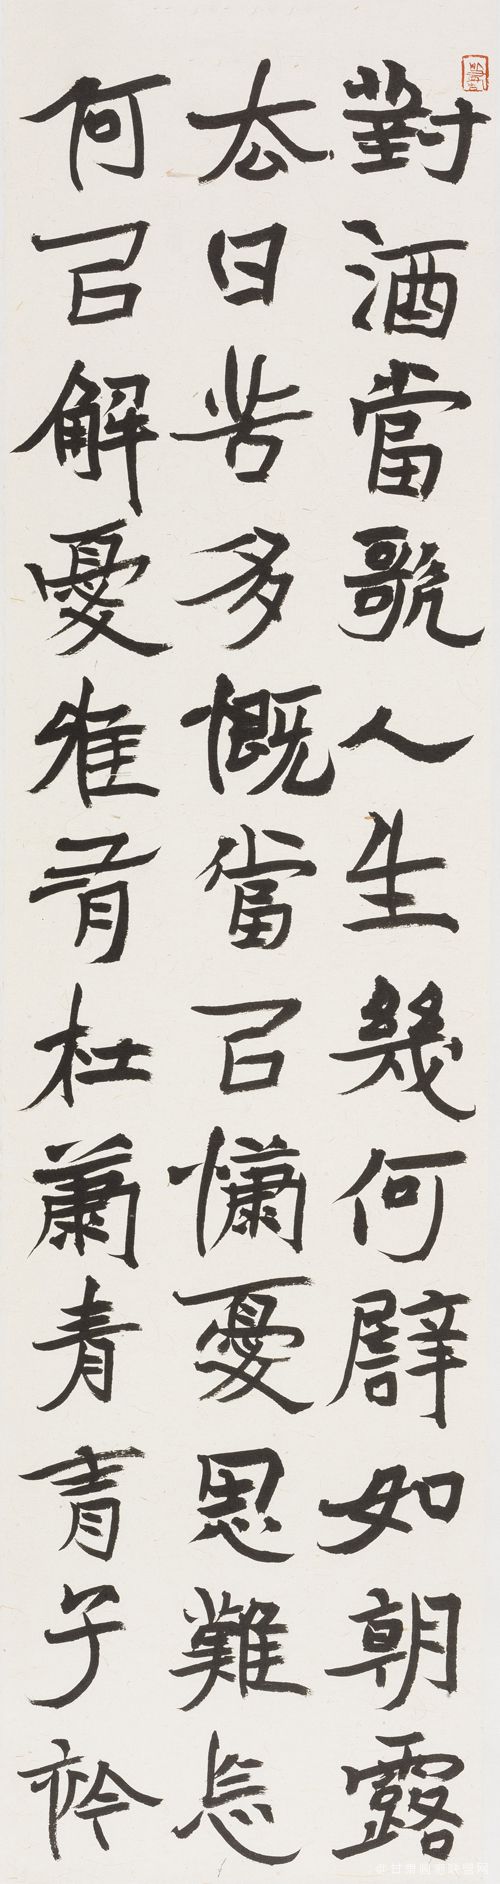 對酒當歌人生幾何譬如朝露
去日苦多慨當以慷憂思難忘
何以解憂唯有杜康青青子衿